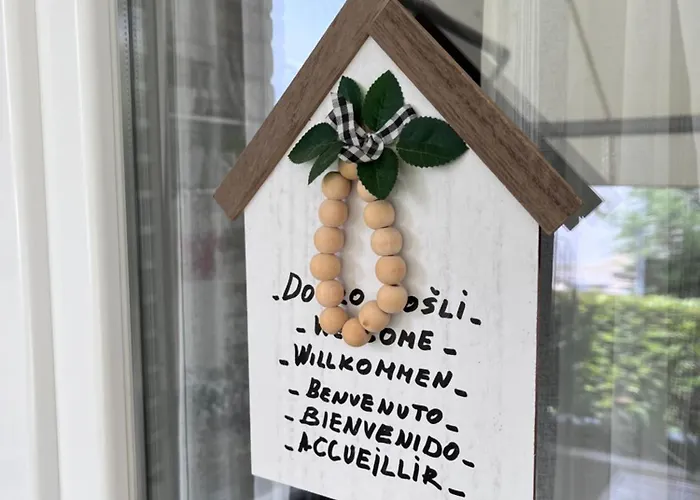 - Do o ošli -
- We ome -
- Willkommen -
- Benvenuto -
- Bienvenido -
- Accueillir -